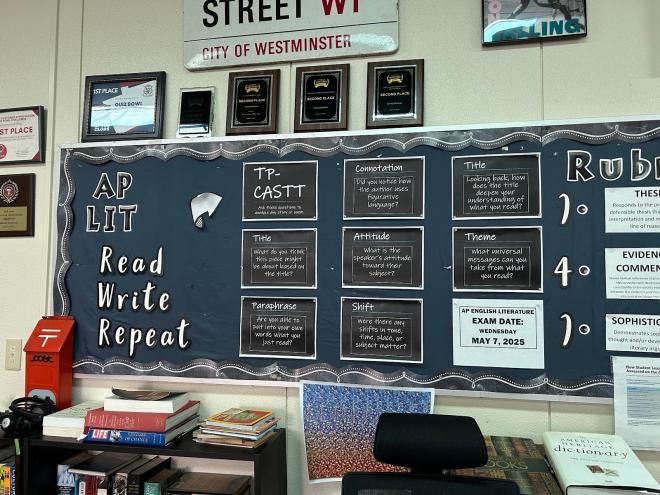 STREET W1
CITY OF WESTMINSTER
1ST PLACE
QUIZ BOWL
SECOND PLACE
SECOND PLACE
SECOND PLACE
ST PLACE
AP
LIT
Read
Write
Repeat
TP-
CASTT
Ask these questions to
analyze any story or poem.
Connotation
Did you notice how
the author uses
figurative
language?
Title
Looking back, how
does the title
deepen your
understanding of
what you read?
Title
What do you think
this piece might
be about based on
the title?
Attitude
What is the
speaker's attitude
toward their
subject?
Theme
What universal
messages can you
take from what
you read?
Paraphrase
Are you able to
put into your own
words what you
just read?
Shift
Were there any
shifts in tone,
time, place, or
subject matter?
AP ENGLISH LITERATURE
EXAM DATE:
WEDNESDAY
MAY 7, 2025
Rubri
THES
Responds to the pro
defensible thesis tha
interpretation and m
line of reaso
4
EVIDENC
COMMEN
SOPHISTIC
Demonstrates so
thought and/or deve
literary argu
LIFE
AMERICAN HERITAGE
dic·tion·ary